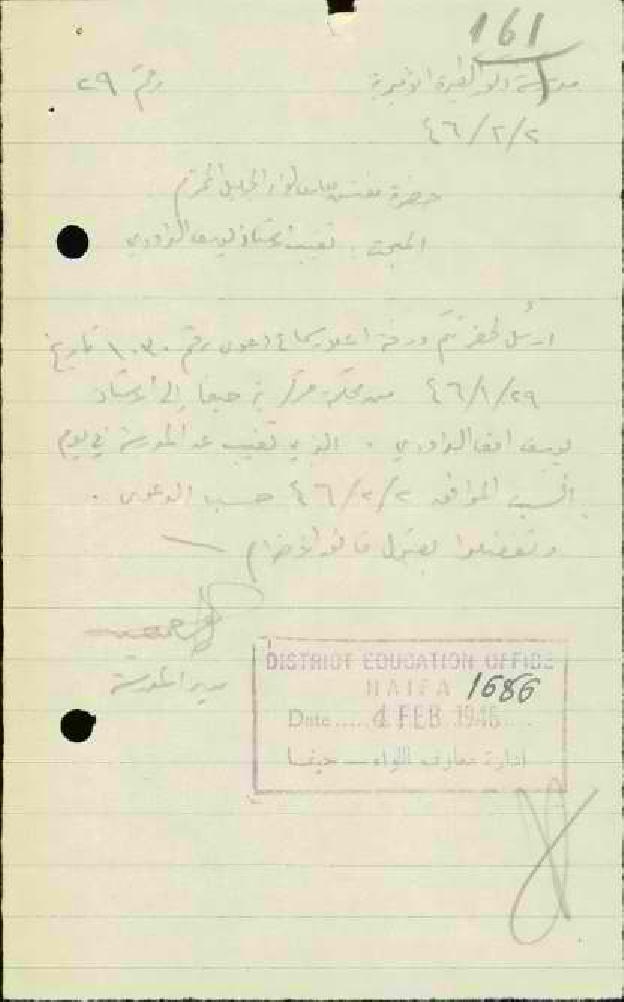 161
مدرسة الأميرية
رقم ٢٩
٤٦/٢/٢
حضرة مفتش معارف لواء الجليل المحترم
المبحث: تغيب الأستاذ يوسف الداودي
ارسل لحضرتكم ورقة اعلان سماع دعوى رقم تاريخ
٤٦/١/٢٩ من محكمة حيفا إلى الأستاذ
يوسف افندي الداودي. الذي تغيب عن المدرسة في يوم
السبت الموافق ٤٦/٢/٢ حسب الدعوى.
وتفضلوا بقبول فائق الاحترام
مدير المدرسة
DISTRICT EDUCATION OFFICE
HAIFA 1686
Date..... 4 FEB 1946.....
ادارة معارف اللواء — حيفا